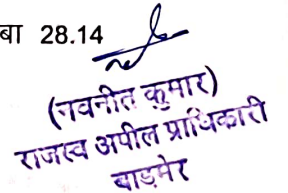 बा 28.14
(नवनीत कुमार)
राजस्व अपील प्राधिकारी
बाड़मेर